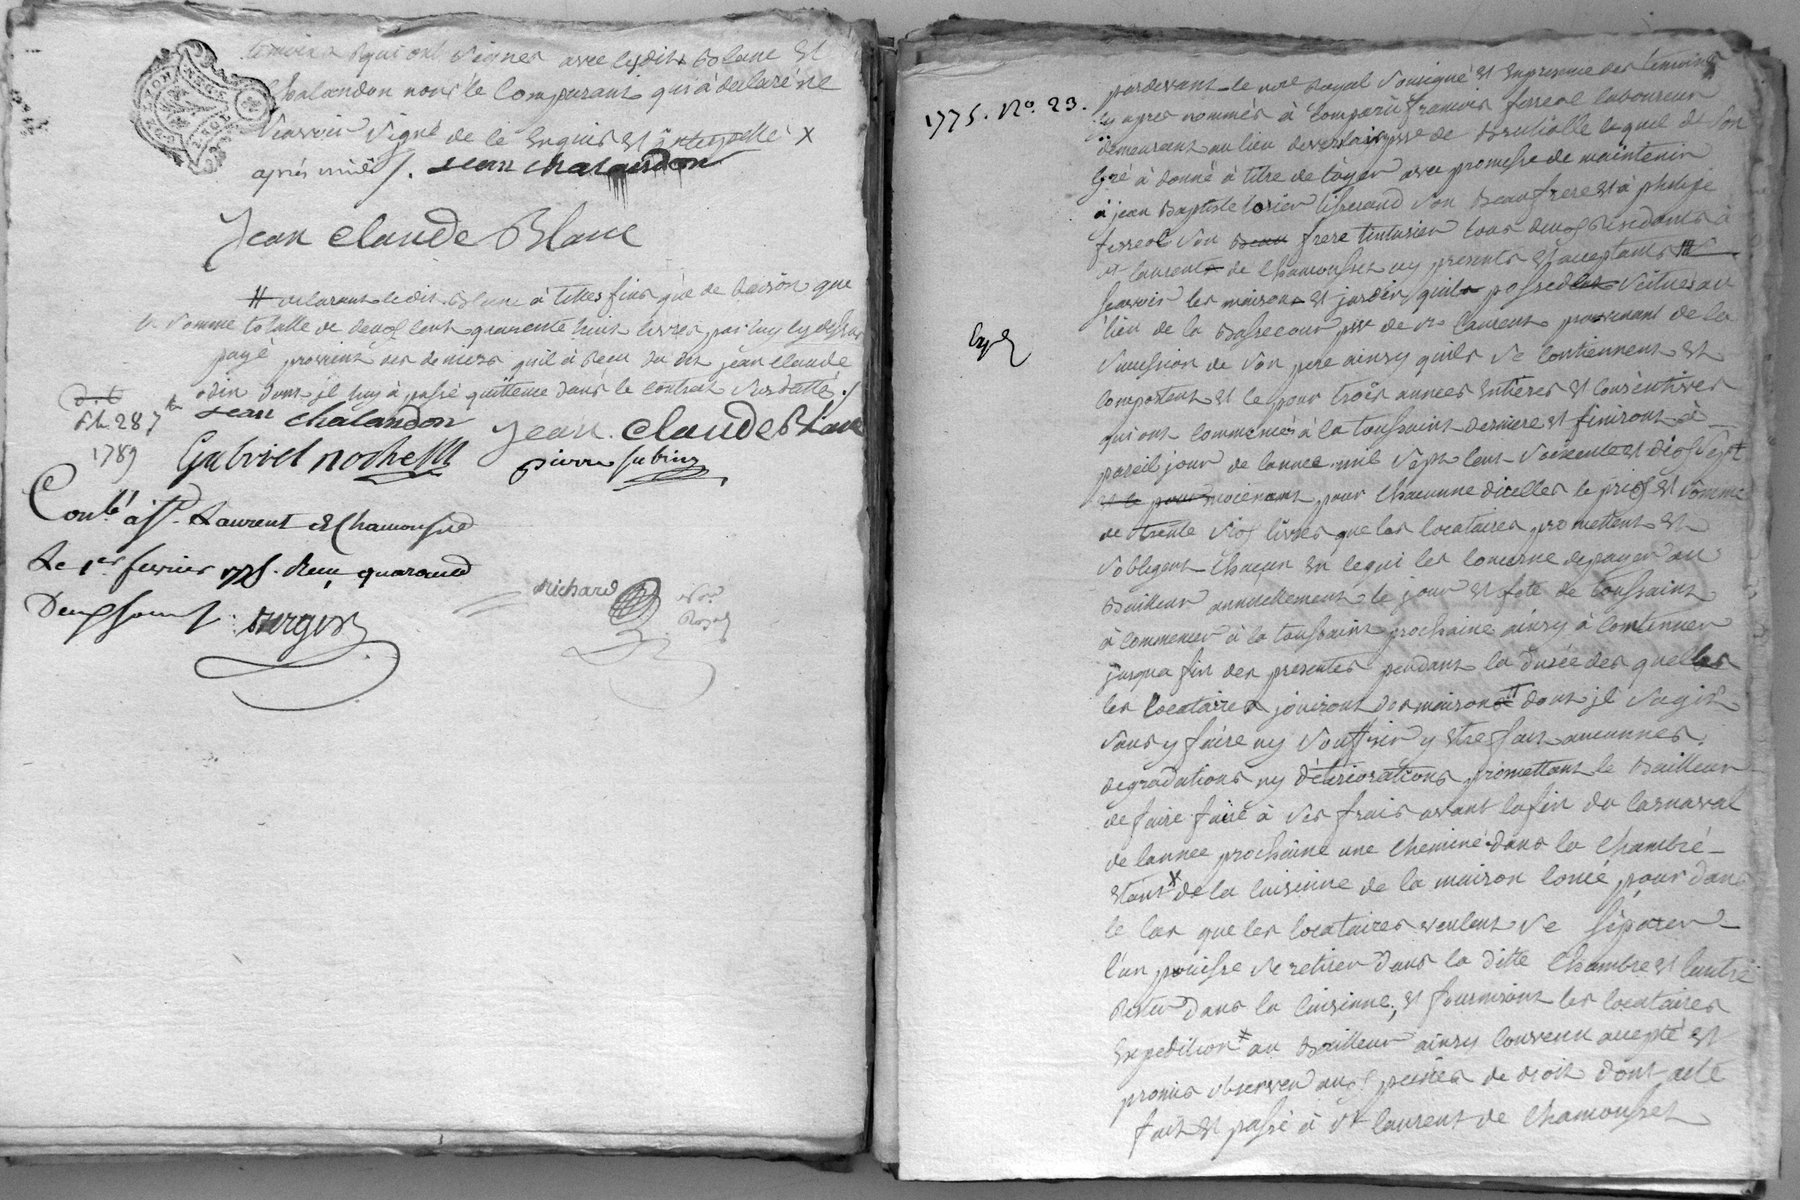 temoins qui ont signes avec lesdits Blanc et
Chalandon non le Comparant qui à declaré ne
scavoir signé de ce enquis et
après midi /. Jean chalandon
Jean Claude Blanc
# declarant ledit Blanc à telles fins que de raison que
la somme totalle de deux cent quarente huit livres par luy cy dessus
payé provient des deniers quil à Reçu du dit jean claude
odin dont jl luy à passé quittance dans le contrat susdatté /
Jean Chalandon
Jean Claude Blanc
Gabriel
pierre
287
1789
Conlé à St. Laurent de Chamousset
Le 1er fevrier 1775. Reçu quarante
Deux sous /.
Richard
Royal
1775. No. 23.
pardevant le nore Royal soussigné et en presence des temoins
cy apres nommés à Comparu francois ferreol laboureur
demeurant au lieu de psse de Brullolle lequel de son
gré à donné à titre de loyer avec promesse de maintenir
à jean Baptiste tisserand son Beaufrere et à philipe
ferreol son Beau frere tinturier tous deux Residants à
st laurent de Chamousset cy presents et acceptants
scavoir les maison et jardin quil possede situés au
lieu de la Bassecour psse de st laurent provenant de la
succession de son pere ainsy quils se contiennent et
comportent et ce pour trois années entieres et consecutives
qui ont commencé à la toussaint derniere et finiront à
pareil jour de lannee mil sept cent soixente et dix sept
et ce pour moienant pour chacunne dicelles le prix et somme
de trente six livres que les locataires promettent et
sobligent chacun en ce qui les concerne de payer au
Bailleur annuellement le jour et fete de toussaint
à commencer à la toussaint prochaine ainsy à continuer
jusqua fin des presentes pendant la durée des quelles
les locataires jouiront des maison dont jl sagit
sans y faire ny souffrir y etre fait aucunnes
degradations ny deteriorations promettant le Bailleur
de faire faire à ses frais avant la fin du carnaval
de lannee prochaine une cheminé dans la chambre
etant de la cuisinne de la maison loué, pour dans
le cas que les locataires veulent se séparer
l'un puisse se retirer dans la ditte chambre et lautre
Rester dans la cuisinne, et fourniront les locataires
Expedition au Bailleur ainsy convenu accepté et
promis observer aux peines de droit dont acte
fait et passé à st laurent de Chamousset